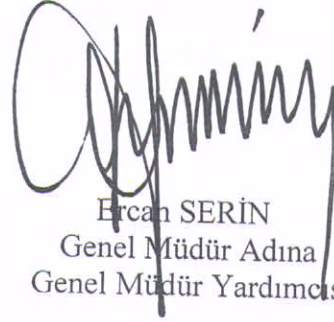 Ercan SERİN
Genel Müdür Adına
Genel Müdür Yardımcısı